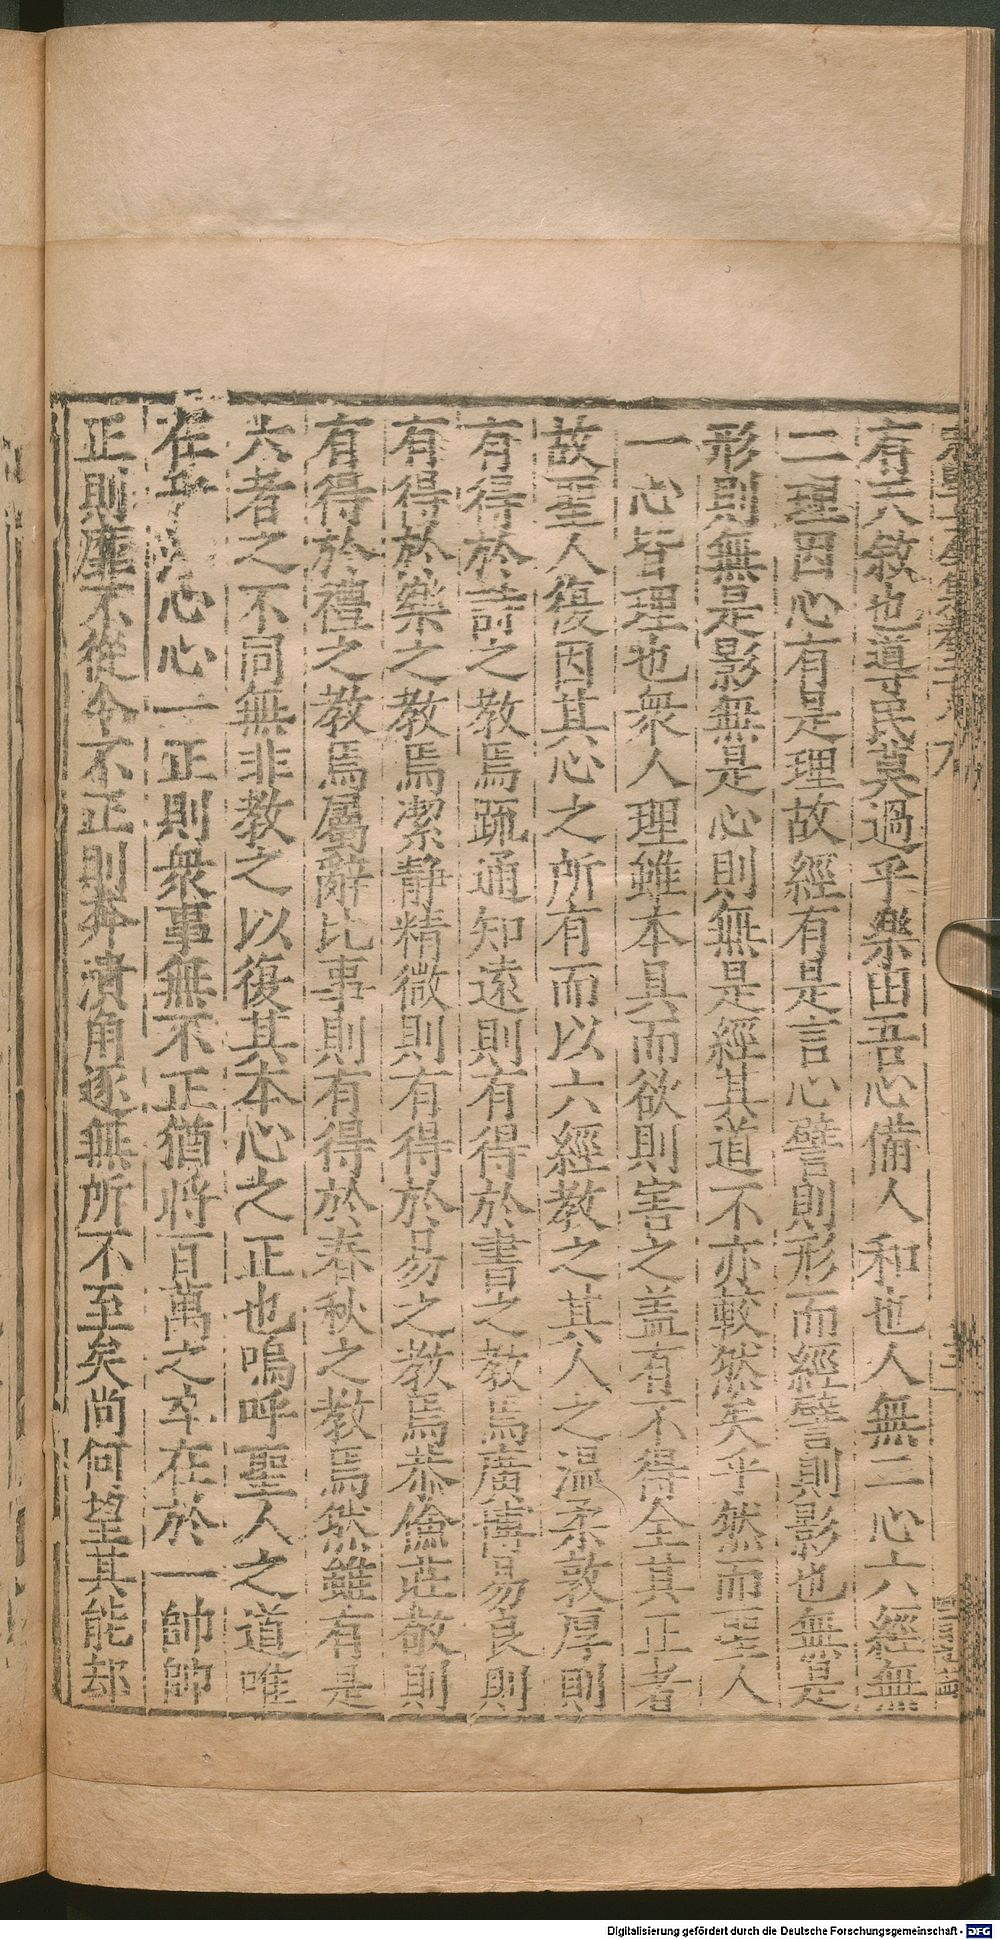 有天敘也道民莫過乎樂由吾心備人和也人無二心六經無
二理因心有是理故經有是言心譬則形而經譬則影也無是
形則無是影無是心則無是經其道不亦較然矣乎然而聖人
一心皆理也衆人理雖本具而欲則害之盖有不得全其正者
故聖人復因其心之所有而以六經教之其人之温柔敦厚則
有得於詩之教焉疏通知遠則有得於書之教焉廣博易良則
有得於樂之教焉潔静精微則有得於易之教焉恭儉莊敬則
有得於禮之教焉屬辭比事則有得於春秋之教焉然雖有是
六者之不同無非教之以復其本心之正也嗚呼聖人之道唯
在乎治心心一正則衆事無不正猶將百萬之卒在於一帥帥
正則靡不從令不正則奔潰角逐無所不至矣尚何望其能却
Digitalisierung gefördert durch die Deutsche Forschungsgemeinschaft - DFG